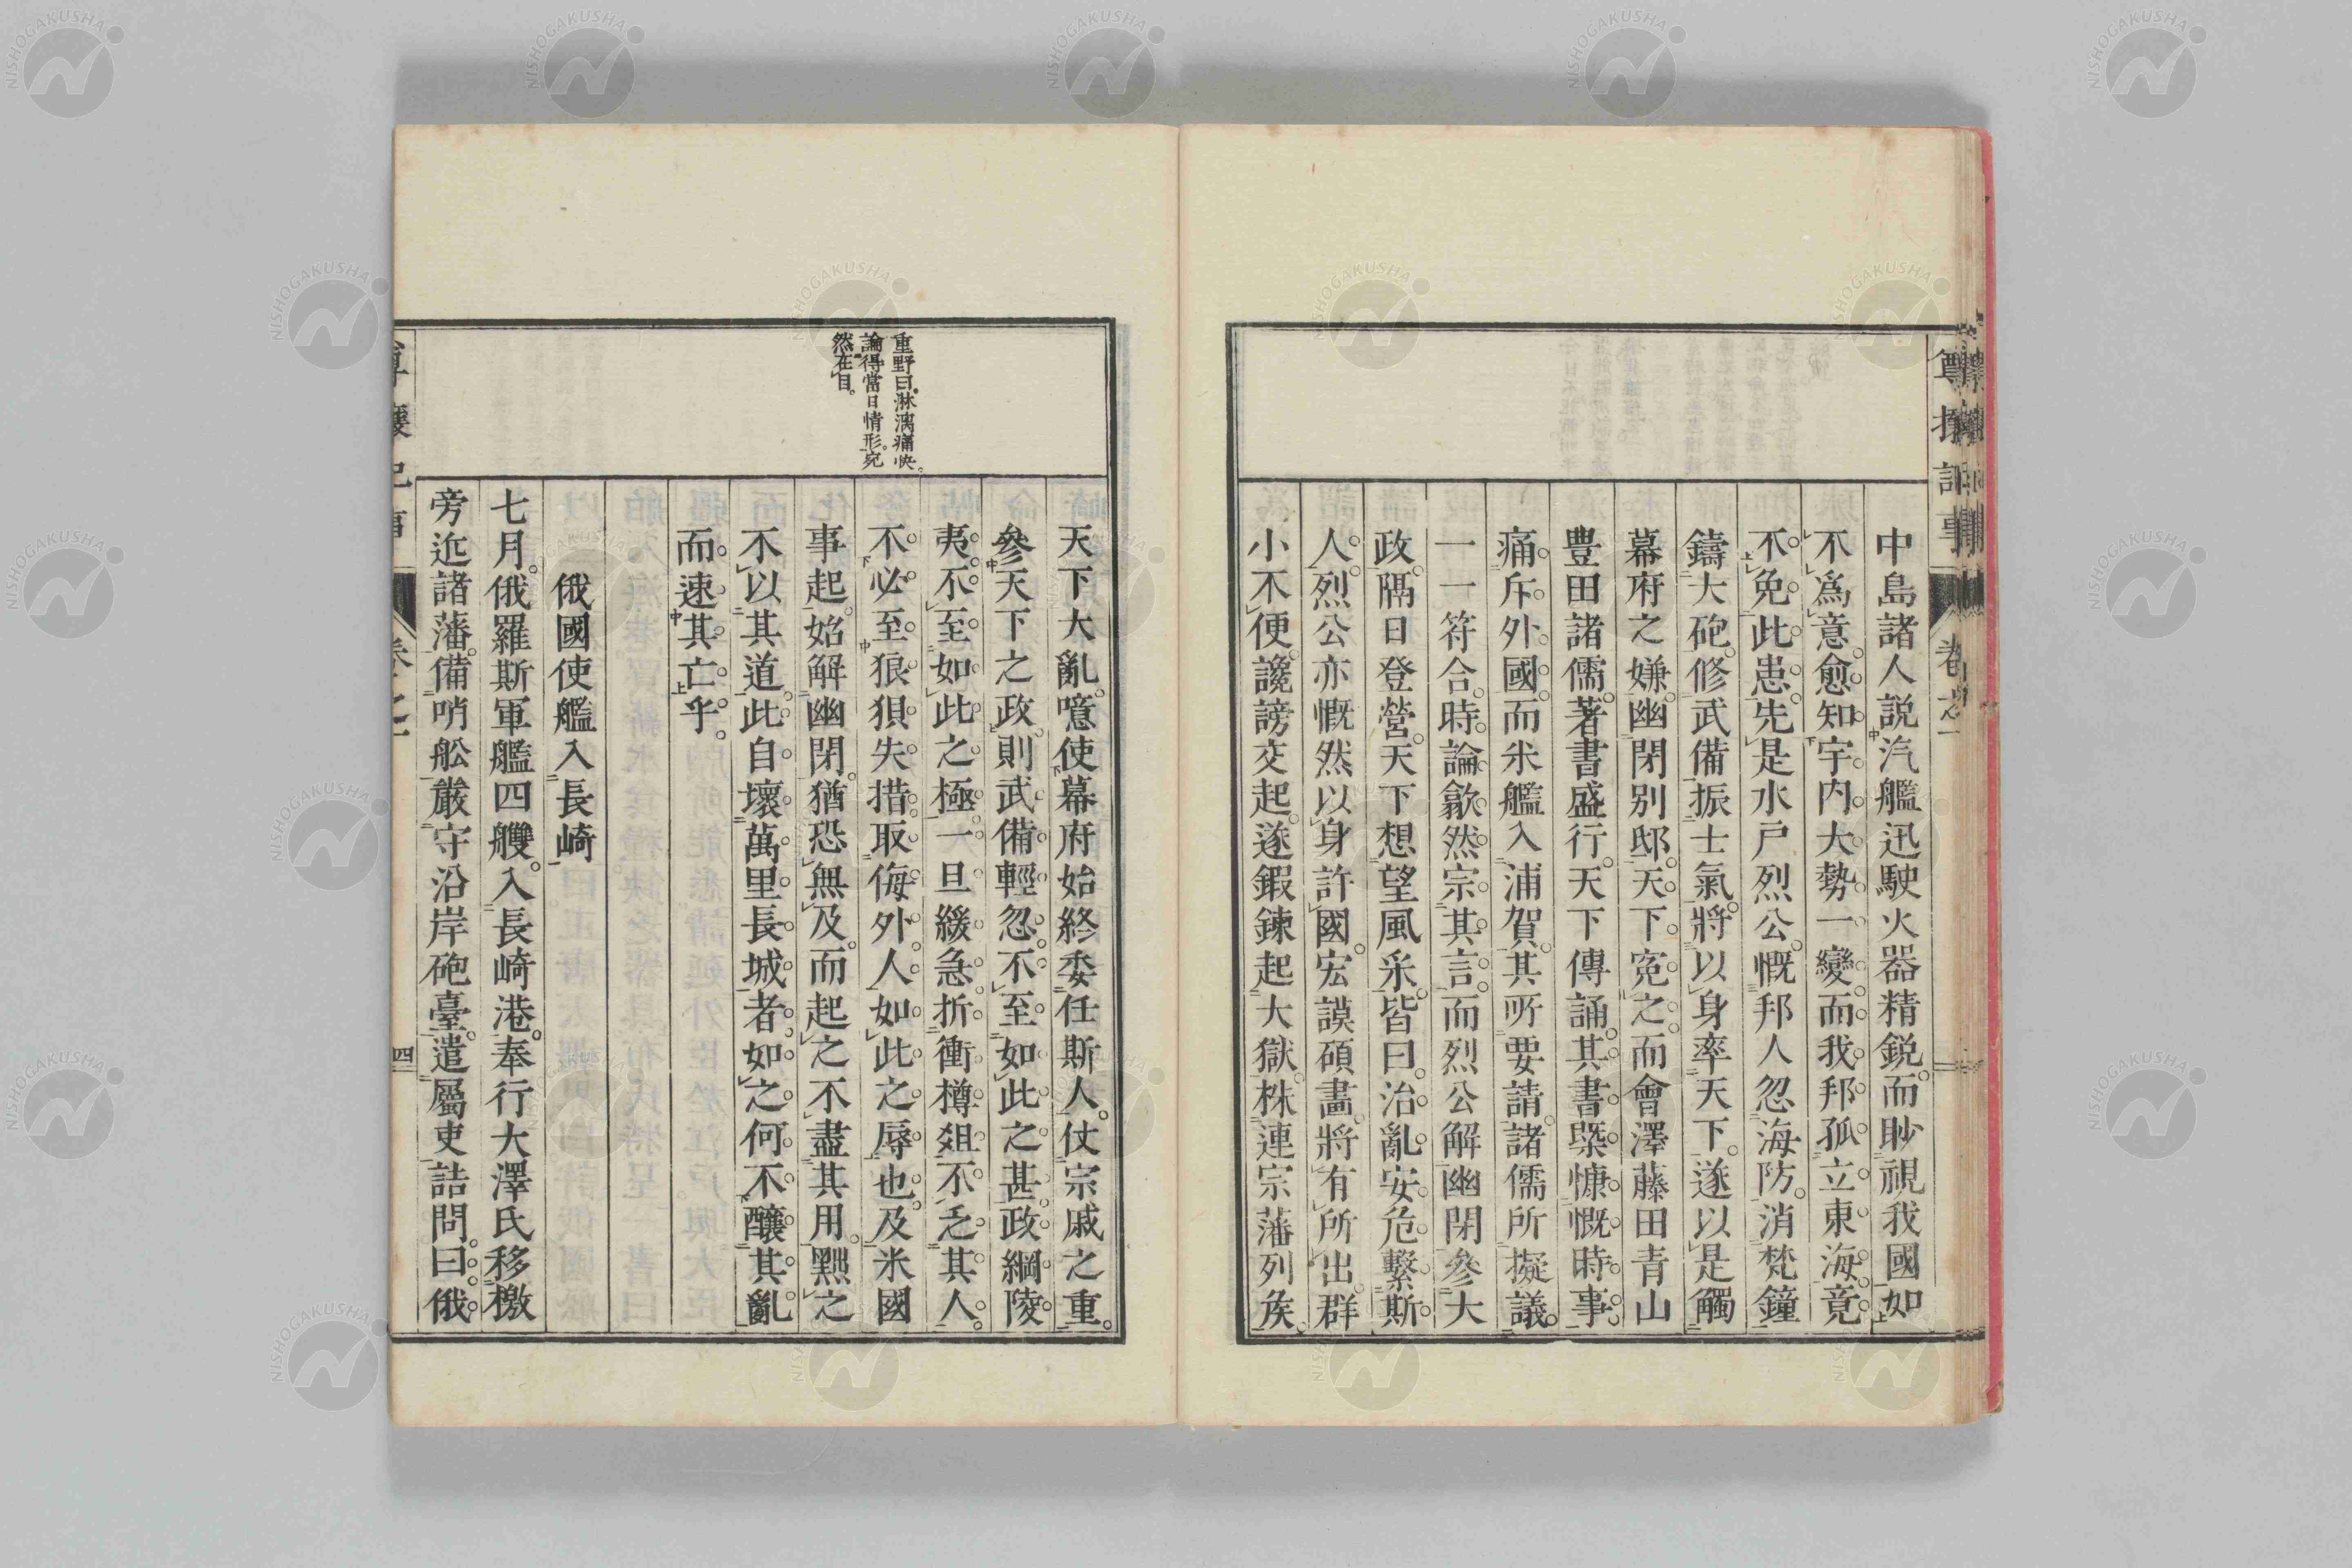 尊攘記事
卷之一
中島諸人説汽艦迅駛火器精鋭。而眇視我國如
不爲意。愈知宇内大勢一變。而我邦孤立東海。竟
不免此患。先是水戸烈公。慨邦人忽海防。消梵鐘
鑄大砲。修武備振士氣。將以身率天下。遂以是觸
幕府之嫌。幽閉別邸。天下寃之。而會澤藤田青山
豊田諸儒。著書盛行。天下傳誦。其書槩慷慨時事。
痛斥外國。而米艦入浦賀。其所要請。諸儒所擬議。
一一符合。時論歙然宗其言。而烈公解幽閉參大
政。隔日登營。天下想望風采。皆曰。治亂安危。繫斯
人。烈公亦慨然以身許國。宏謨碩畫。將有所出。群
小不便。讒謗交起。遂鍜鍊起大獄。株連宗藩列矦。
天下大亂。噫使幕府始終委任斯人。仗宗戚之重。
參天下之政。則武備輕忽。不至如此之甚。政綱陵
夷。不至如此之極。一旦緩急。折衝樽俎。不乏其人。
不必至狼狽失措。取侮外人。如此之辱也。及米國
事起。始解幽閉。猶恐無及。而起之不盡其用。黜之
不以其道。此自壞萬里長城者。如之何不釀其亂
而速其亡乎。
重野曰。淋漓痛快。
論得當日情形。宛
然在目。
俄國使艦入長崎
七月。俄羅斯軍艦四艘。入長崎港。奉行大澤氏移檄
旁近諸藩。備哨舩嚴守沿岸砲臺。遣屬吏詰問。曰。俄
尊攘記事
卷之一
四
NISHOGAKUSHA